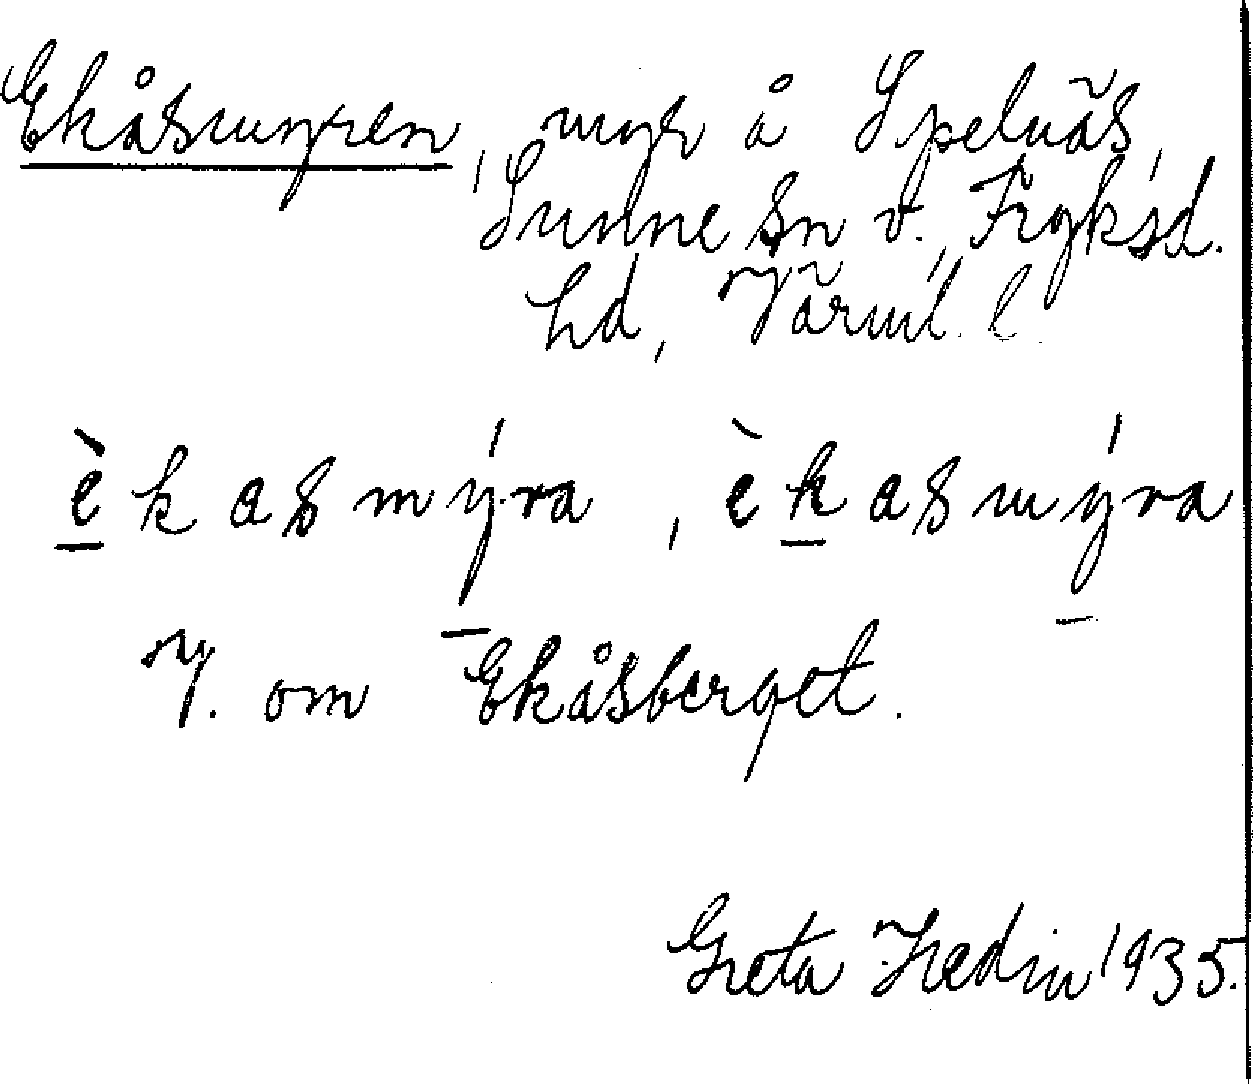 Ekåsmyren, myr å Spelnäs,
Sunne sn v. Fryksd.
hd, Värml. l.
èkasmýra, èkasmýra
V. om Ekåsberget.
Greta Hedin 1935.